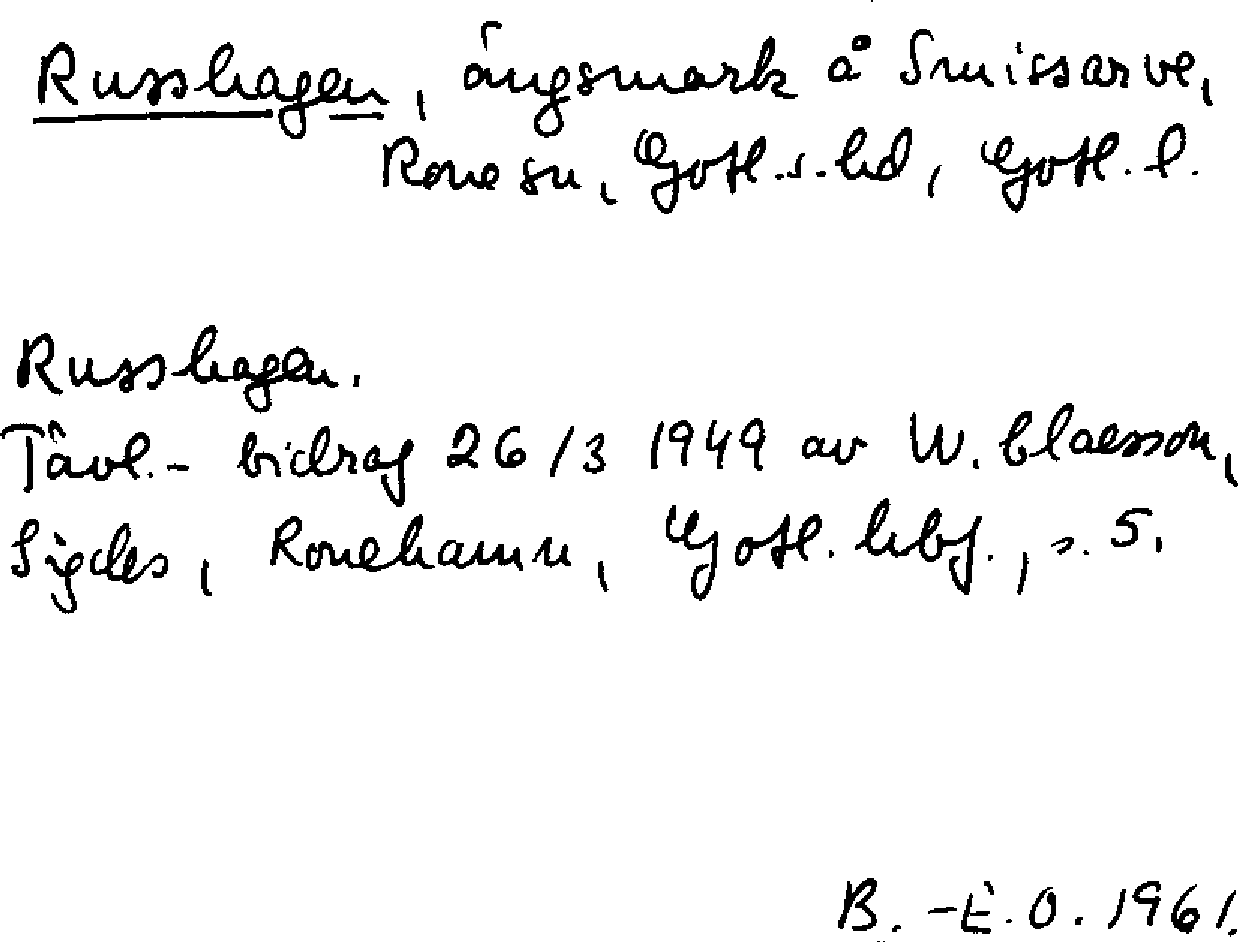 Russhagen, ängsmark å Smissarve,
Rone sn, Gotl. s. hd, Gotl. l.
Russhagen.
Tävl.-bidrag 26/3 1949 av W. Claesson,
Sigdes, Ronehamn, Gotl. hbf., s. 5.
B.-E.O. 1961.